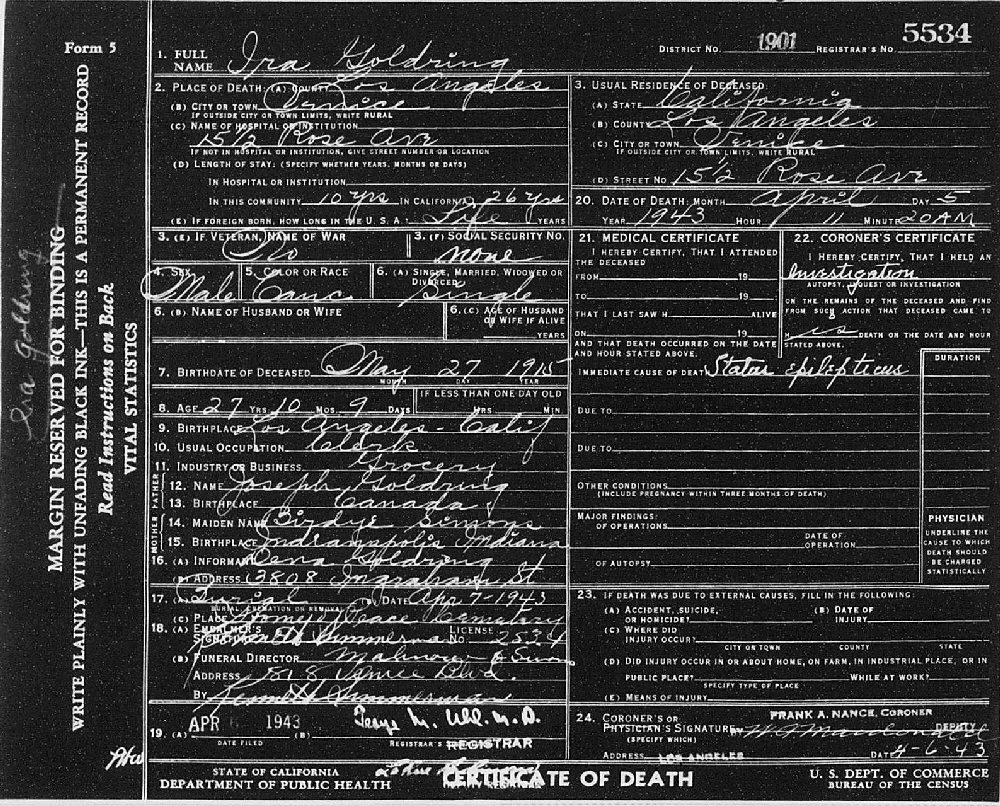 Form 5
MARGIN RESERVED FOR BINDING
WRITE PLAINLY WITH UNFADING BLACK INK—THIS IS A PERMANENT RECORD
Read Instructions on Back
VITAL STATISTICS
Ira Goldring
DISTRICT NO. 1901 REGISTRAR'S NO 5534
1. FULL NAME Ira Goldring
2. PLACE OF DEATH: (A) COUNTY Los Angeles
(B) CITY OR TOWN Venice
IF OUTSIDE CITY OR TOWN LIMITS, WRITE RURAL
(C) NAME OF HOSPITAL OR INSTITUTION
15 1/2 Rose Ave
IF NOT IN HOSPITAL OR INSTITUTION, GIVE STREET NUMBER OR LOCATION
(D) LENGTH OF STAY: (SPECIFY WHETHER YEARS, MONTHS OR DAYS)
IN HOSPITAL OR INSTITUTION
IN THIS COMMUNITY 10 yrs IN CALIFORNIA 26 yrs
(E) IF FOREIGN BORN, HOW LONG IN THE U. S. A.? Life YEARS
3. USUAL RESIDENCE OF DECEASED:
(A) STATE California
(B) COUNTY Los Angeles
(C) CITY OR TOWN Venice
IF OUTSIDE CITY OR TOWN LIMITS, WRITE RURAL
(D) STREET NO 15 1/2 Rose Ave
3. (E) IF VETERAN, NAME OF WAR No
3. (F) SOCIAL SECURITY NO. none
4. SEX Male
5. COLOR OR RACE Cauc.
6. (A) SINGLE, MARRIED, WIDOWED OR DIVORCED Single
6. (B) NAME OF HUSBAND OR WIFE
6. (C) AGE OF HUSBAND OR WIFE IF ALIVE YEARS
7. BIRTHDATE OF DECEASED May 27 1915
MONTH DAY YEAR
8. AGE 27 YRS 10 MOS. 9 DAYS
IF LESS THAN ONE DAY OLD
HRS MIN
9. BIRTHPLACE Los Angeles - Calif
10. USUAL OCCUPATION Clerk
11. INDUSTRY OR BUSINESS Grocery
FATHER
12. NAME Joseph Goldring
13. BIRTHPLACE Canada
MOTHER
14. MAIDEN NAME Birdye Simons
15. BIRTHPLACE Indianapolis Indiana
16. (A) INFORMANT Lena Goldring
(B) ADDRESS 3808 Ingraham St
17. (A) Burial (B) DATE Apr 7-1943
BURIAL, CREMATION OR REMOVAL
(C) PLACE Home of Peace Cemetery
18. (A) EMBALMER'S SIGNATURE LICENSE NO 2534
(B) FUNERAL DIRECTOR
ADDRESS 1818 Venice Blvd.
BY Kenneth Simmerman
19. (A) APR 6 1943 (B) George M. Uhl. M.D.
DATE FILED REGISTRAR'S REGISTRAR
20. DATE OF DEATH: MONTH April DAY 5
YEAR 1943 HOUR 11 MINUTE 20 AM
21. MEDICAL CERTIFICATE
I HEREBY CERTIFY, THAT I ATTENDED THE DECEASED
FROM 19
TO 19
THAT I LAST SAW H ALIVE
ON 19
AND THAT DEATH OCCURRED ON THE DATE AND HOUR STATED ABOVE.
22. CORONER'S CERTIFICATE
I HEREBY CERTIFY, THAT I HELD AN
Investigation
AUTOPSY, INQUEST OR INVESTIGATION
ON THE REMAINS OF THE DECEASED AND FIND
FROM SUCH ACTION THAT DECEASED CAME TO
H is DEATH ON THE DATE AND HOUR
STATED ABOVE.
IMMEDIATE CAUSE OF DEATH Status epilepticus
DURATION
DUE TO
DUE TO
OTHER CONDITIONS
(INCLUDE PREGNANCY WITHIN THREE MONTHS OF DEATH)
MAJOR FINDINGS:
OF OPERATIONS
DATE OF OPERATION
OF AUTOPSY
PHYSICIAN
UNDERLINE THE
CAUSE TO WHICH
DEATH SHOULD
BE CHARGED
STATISTICALLY
23. IF DEATH WAS DUE TO EXTERNAL CAUSES, FILL IN THE FOLLOWING:
(A) ACCIDENT, SUICIDE, OR HOMICIDE?
(B) DATE OF INJURY
(C) WHERE DID INJURY OCCUR?
CITY OR TOWN COUNTY STATE
(D) DID INJURY OCCUR IN OR ABOUT HOME, ON FARM, IN INDUSTRIAL PLACE, OR IN
PUBLIC PLACE? WHILE AT WORK?
SPECIFY TYPE OF PLACE
(E) MEANS OF INJURY
24. CORONER'S OR PHYSICIAN'S SIGNATURE
FRANK A. NANCE, CORONER
(SPECIFY WHICH) DEPUTY
ADDRESS LOS ANGELES DATE 4-6-43
STATE OF CALIFORNIA
DEPARTMENT OF PUBLIC HEALTH
CERTIFICATE OF DEATH
U. S. DEPT. OF COMMERCE
BUREAU OF THE CENSUS